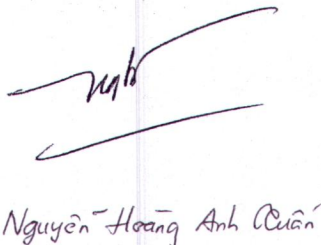 Nguyễn Hoàng Anh Quân